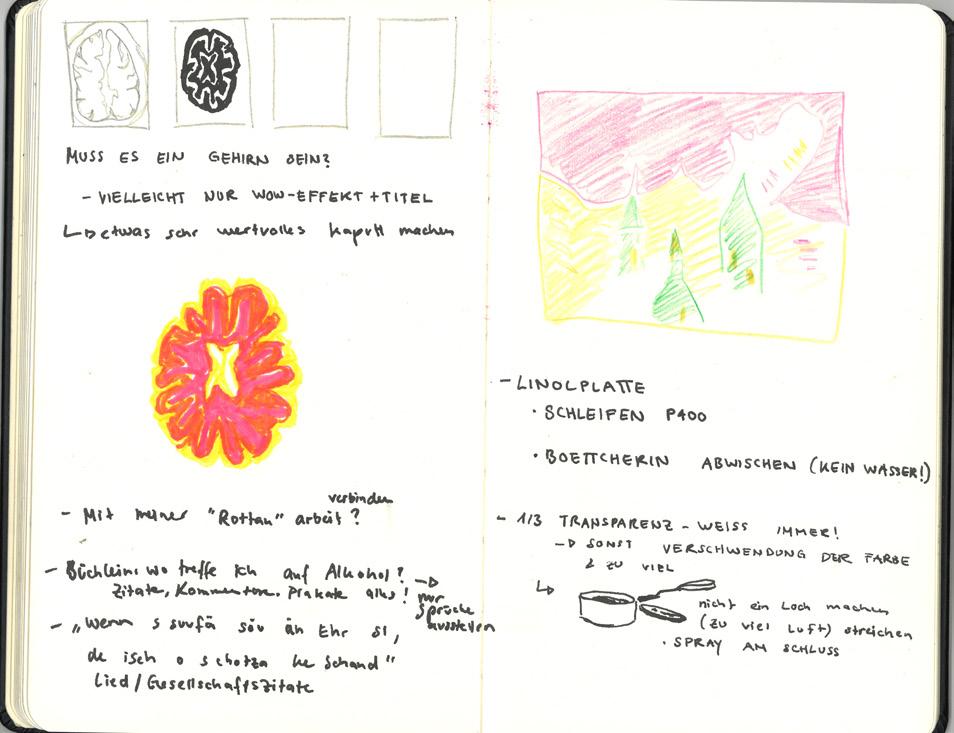 MUSS ES EIN GEHIRN SEIN?
- VIELLEICHT NUR WOW-EFFEKT + TITEL
↳ etwas sehr wertvolles kaputt machen
verbinden
- Mit meiner "Rottan" arbeit?
- Büchlein: wo treffe ich auf Alkohol? →
Zitate, Kommentare. Plakate alles! nur
sprüche
ausstellen
- „Wenn s suufä söu än Ehr si,
de isch o s chotza ke Schand"
Lied / Gesellschaftszitate
- LINOLPLATTE
· SCHLEIFEN P400
· BOETTCHERIN ABWISCHEN (KEIN WASSER!)
- 1/3 TRANSPARENZ-WEISS IMMER!
→ SONST VERSCHWENDUNG DER FARBE
& ZU VIEL
↳ nicht ein Loch machen
(zu viel Luft) streichen
· SPRAY AM SCHLUSS